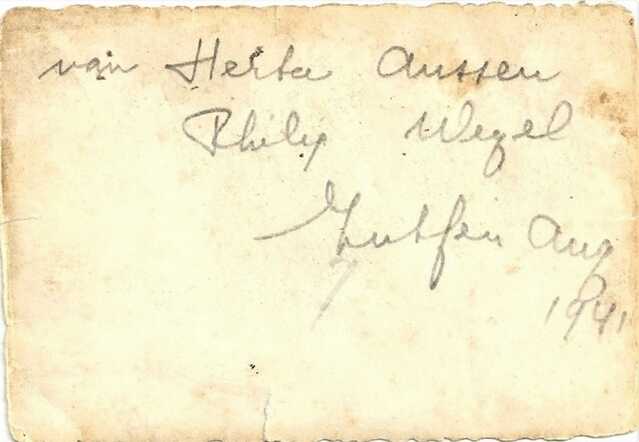 van Herta Aussen
Philip Wezel
Zutfen Aug
1941